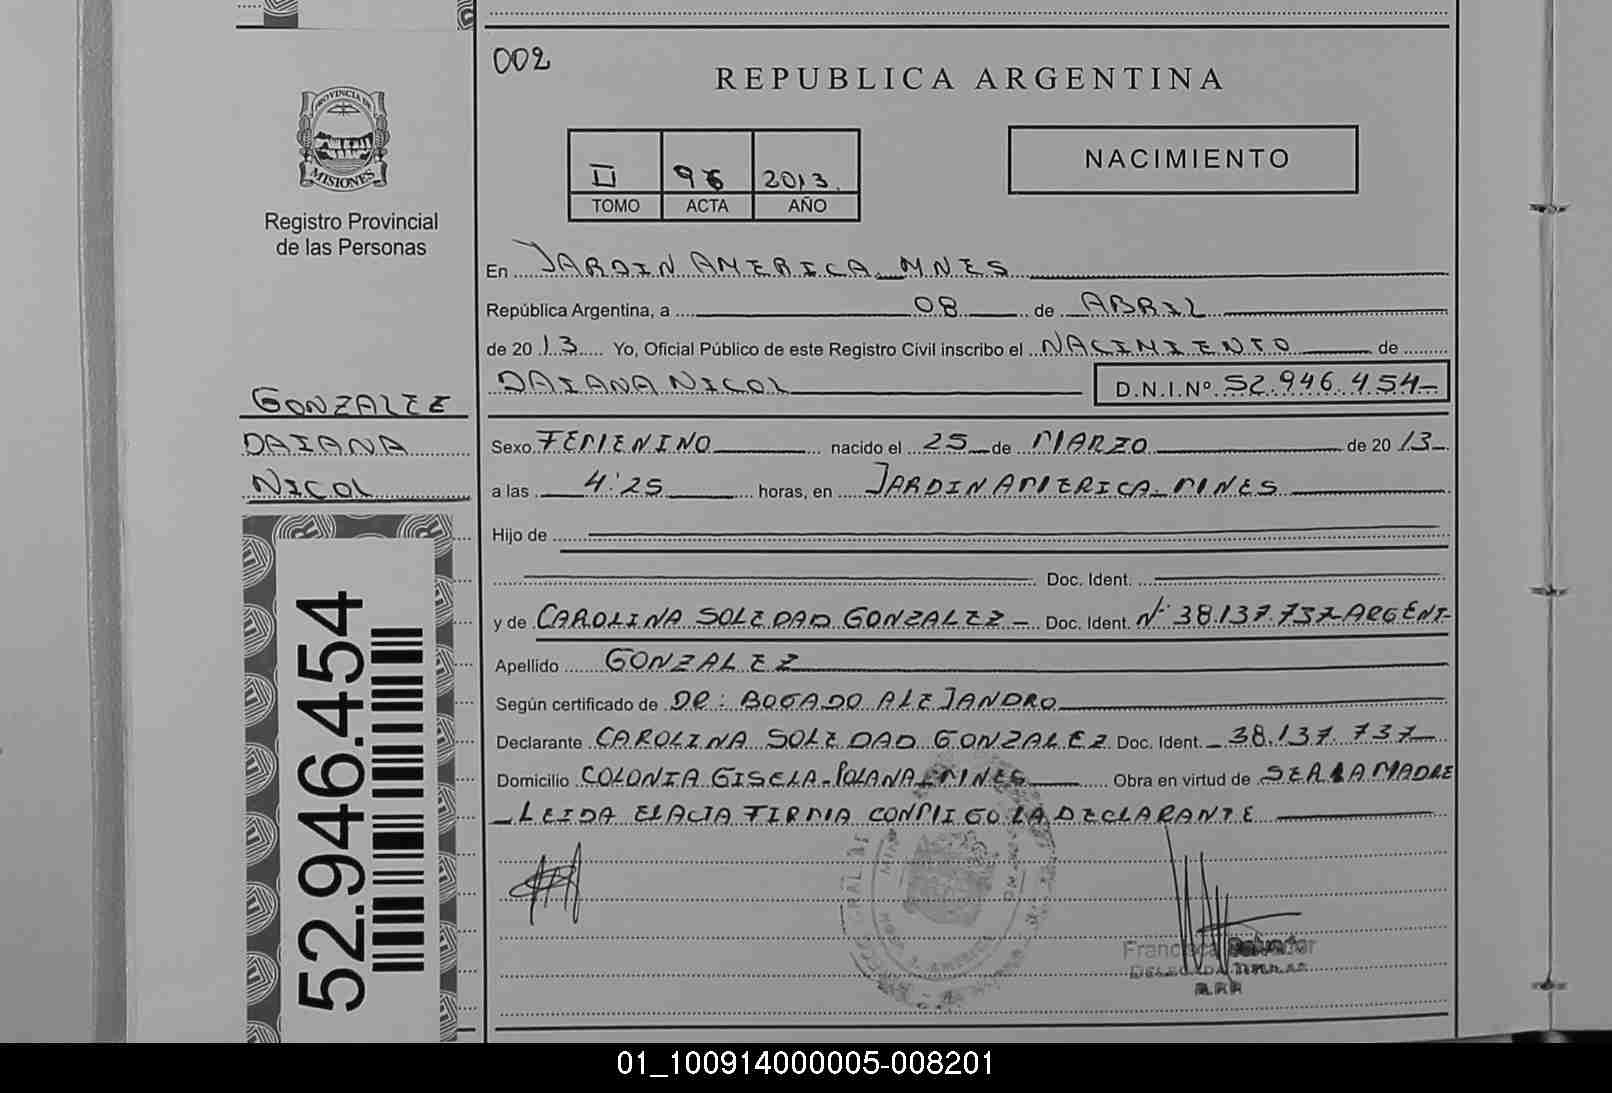 002
REPUBLICA ARGENTINA
PROVINCIA DE
MISIONES
Registro Provincial
de las Personas
II 96 2013.
TOMO ACTA AÑO
NACIMIENTO
En JARDIN AMERICA MNES
República Argentina, a 08 de ABRIL
de 2013 Yo, Oficial Público de este Registro Civil inscribo el NACIMIENTO de
DAIANA NICOL D.N.I.Nº 52.946.454-
GONZALEZ
DAIANA
NICOL
Sexo FEMENINO nacido el 25 de MARZO de 2013
a las 4:25 horas, en JARDIN AMERICA - MNES
Hijo de
Doc. Ident.
y de CAROLINA SOLEDAD GONZALEZ - Doc. Ident. Nº 38.137.737-ARGENT-
Apellido GONZALEZ
Según certificado de DR: BOGADO ALEJANDRO
Declarante CAROLINA SOLEDAD GONZALEZ Doc. Ident. 38.137.737
Domicilio COLONIA GISELA-POLANA-MNES Obra en virtud de SER LA MADRE
LEIDA EL ACTA FIRMA CONMIGO LA DECLARANTE
52.946.454
Francisca Salvador
DELEGADA TITULAR
01_100914000005-008201